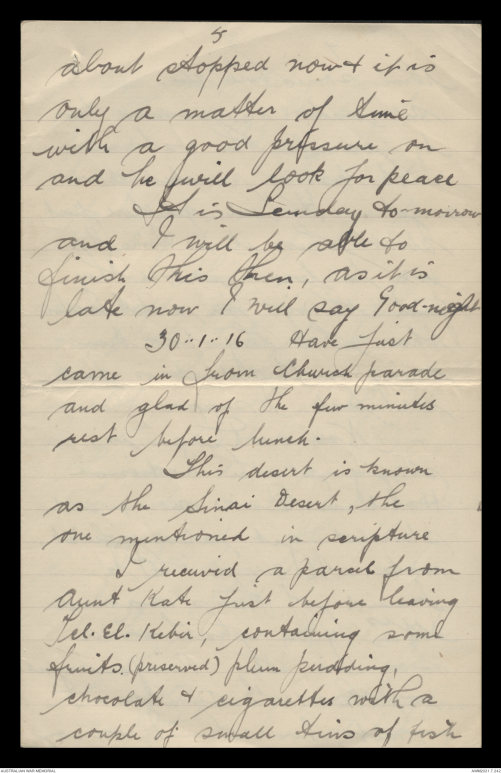 5
about stopped now & it is
only a matter of time
with a good pressure on
and he will look for peace
It is Sunday to-morrow
and I will be able to
finish this then, as it is
late now I will say Good-night
30..1..16 Have just
came in from Church parade
and glad of the few minutes
rest before lunch.
This desert is known
as the Sinai Desert, the
one mentioned in scripture
I received a parcel from
Aunt Kate just before leaving
Tel. El. Kebir, containing some
fruits (preserved) plum pudding,
chocolate & cigarettes with a
couple of small tins of fish
AUSTRALIAN WAR MEMORIAL